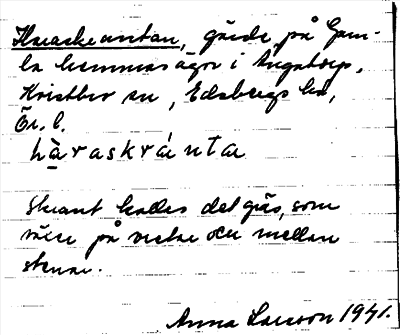 Haraskrantan, gärde på Gam-
la hemmets ägor i Ängatorp,
Kvistbro sn, Edsbergs hd,
Ör. l.
håraskránta
Skrant kallas det gräs, som
växer på mellan
stenar.
Anna Larsson 1941.